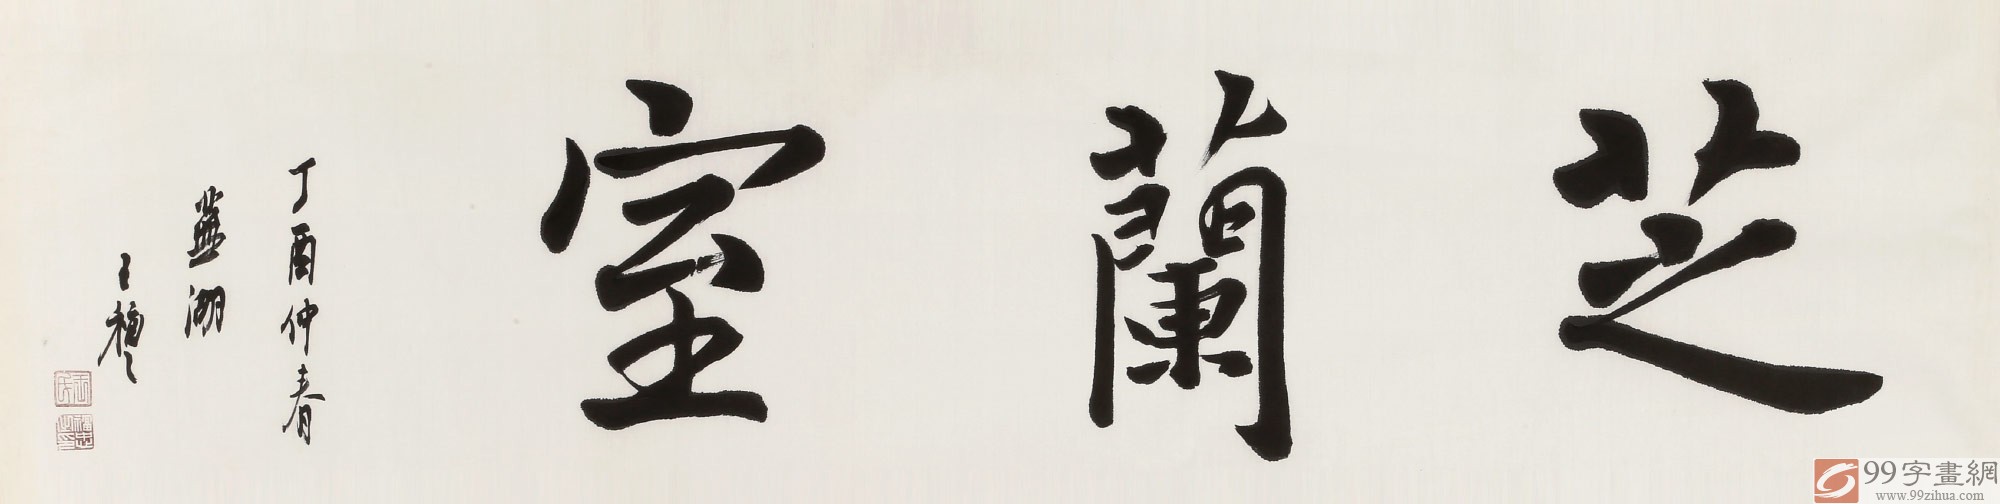 芝蘭室
丁酉仲春
蕪湖
王福
99字畫網
www.99zihua.com